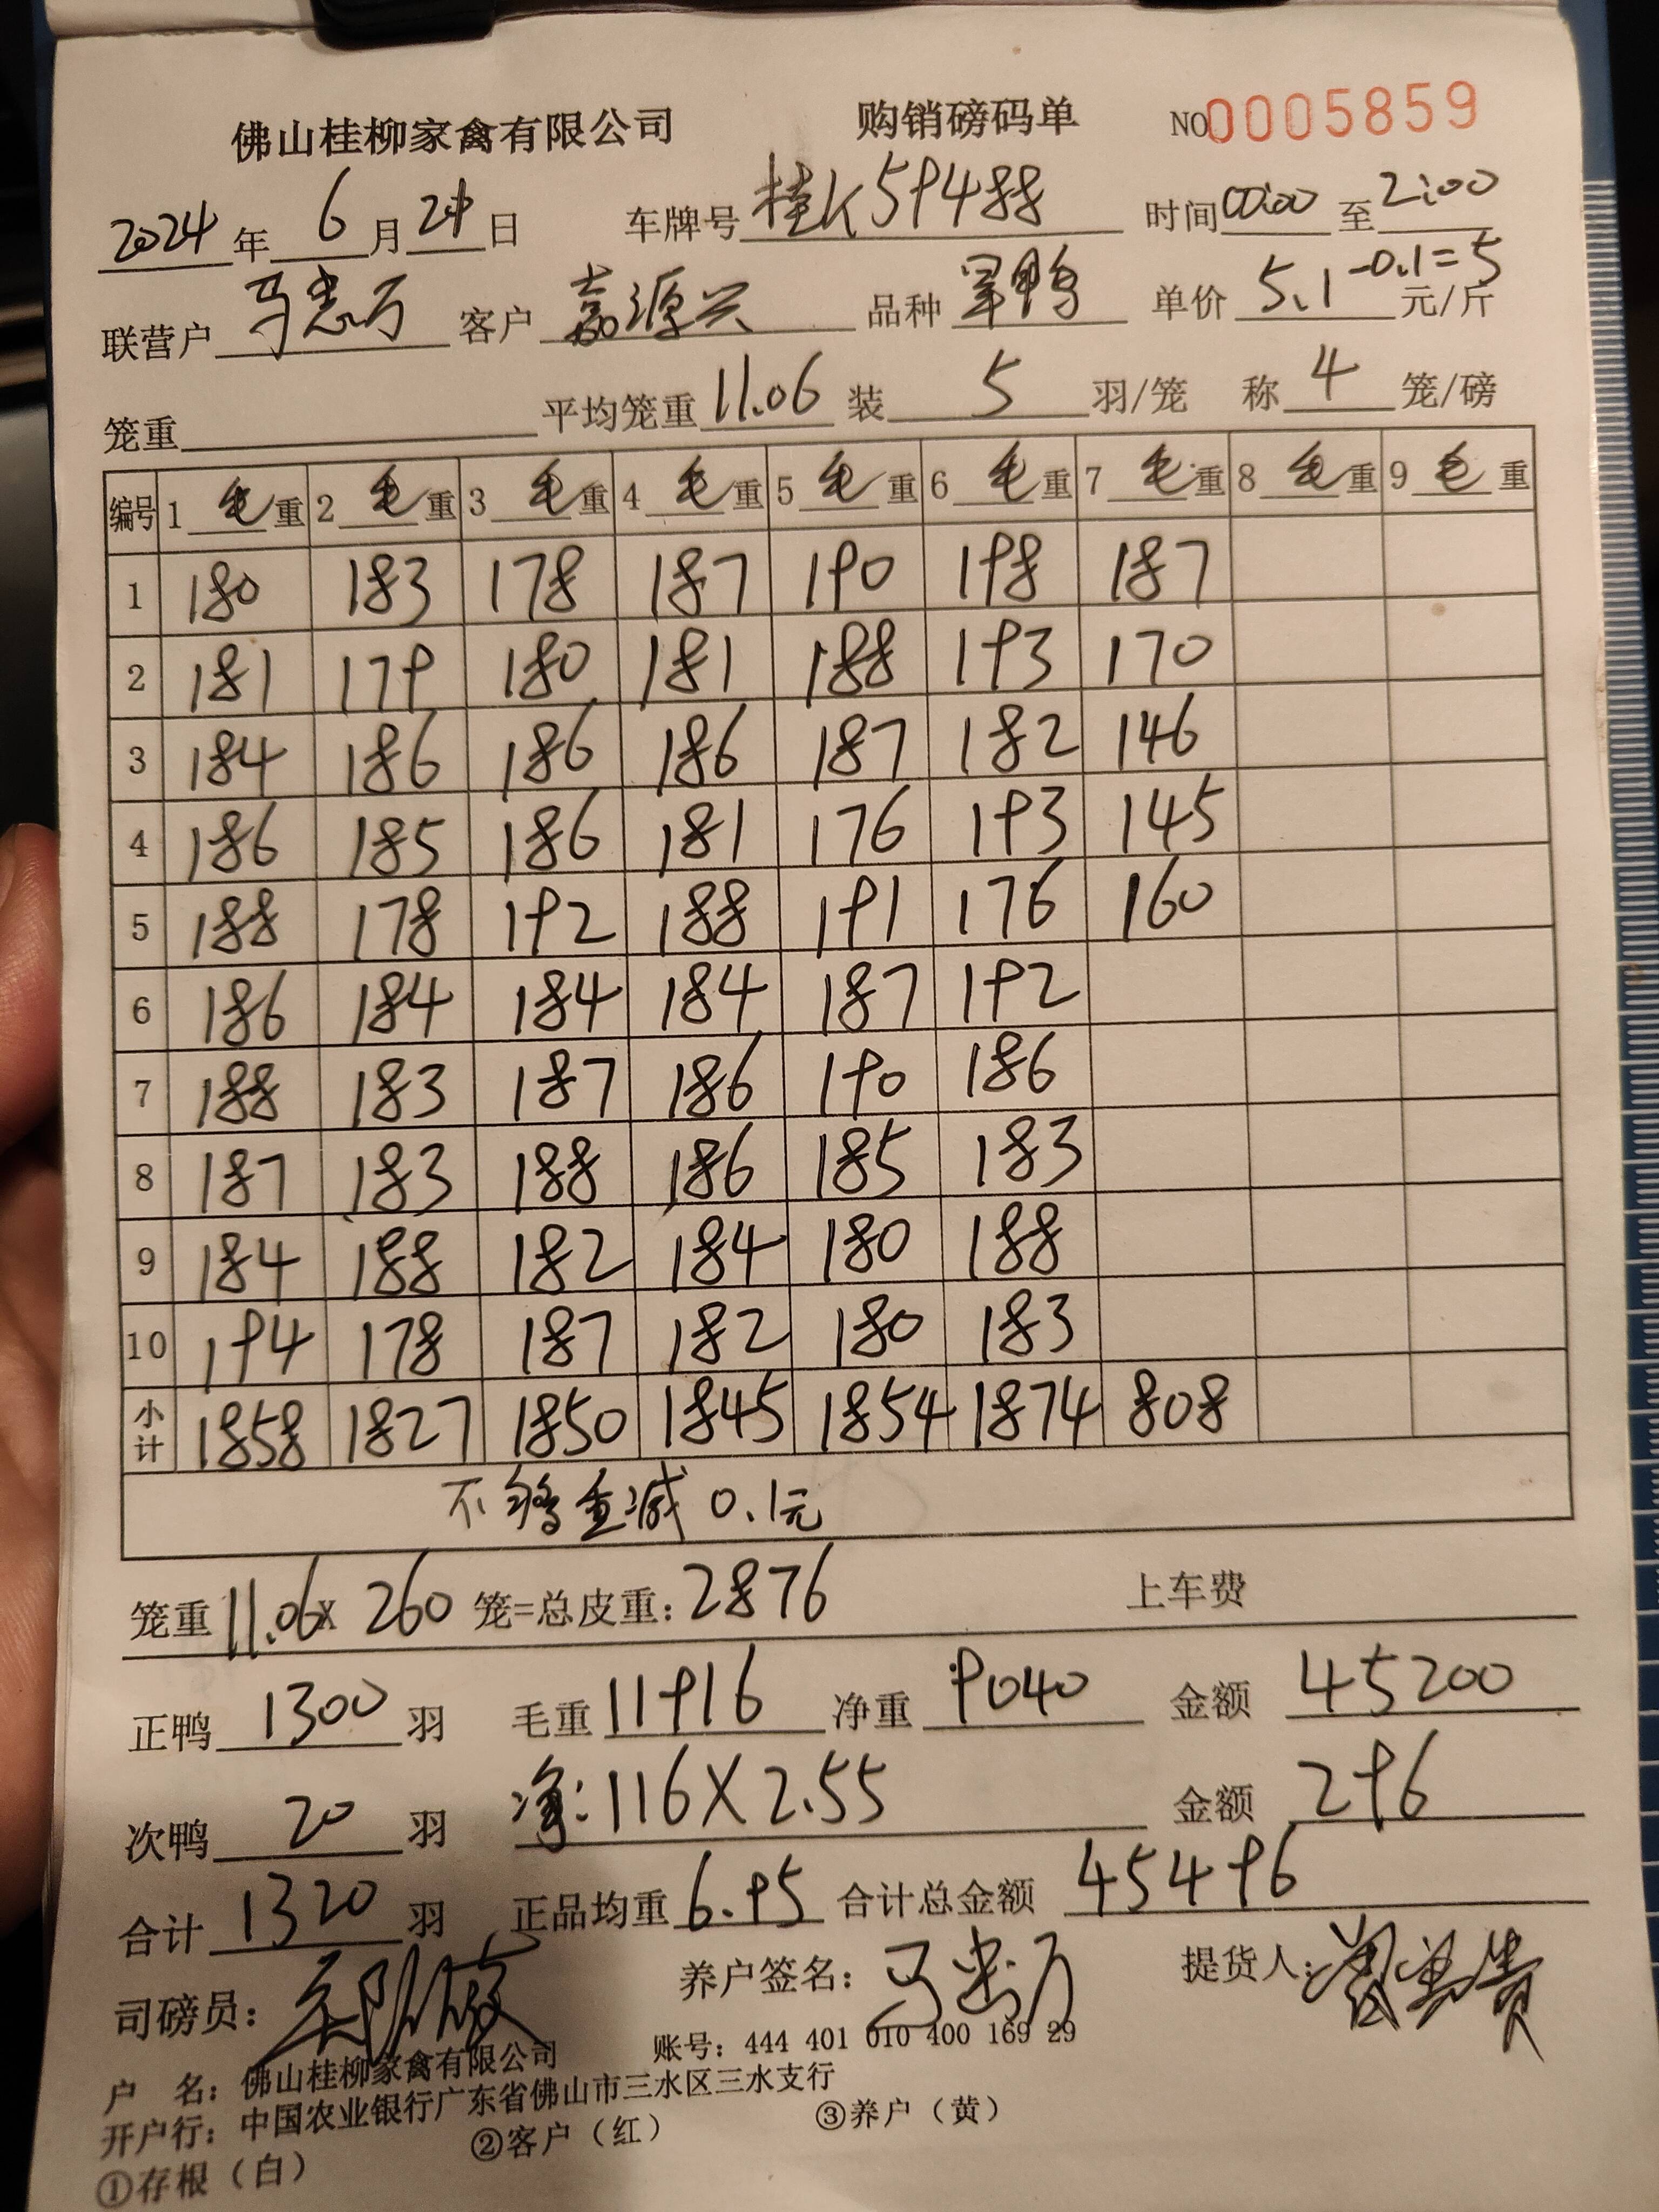 佛山桂柳家禽有限公司 购销磅码单 NO 0005859
2024年6月29日 车牌号 桂K59488 时间 00:00 至 2:00
联营户 客户 嘉源兴 品种 鸭 单价 5.1-0.1=5 元/斤
笼重 平均笼重 11.06 装 5 羽/笼 称 4 笼/磅
编号 1 毛重 2 毛重 3 毛重 4 毛重 5 毛重 6 毛重 7 毛重 8 毛重 9 毛重
1 180 183 178 187 190 198 187
2 181 179 180 181 188 193 170
3 184 186 186 186 187 182 146
4 186 185 186 181 176 193 145
5 188 178 192 188 191 176 160
6 186 184 184 184 187 192
7 188 183 187 186 190 186
8 187 183 188 186 185 183
9 184 188 182 184 180 188
10 194 178 187 182 180 183
小计 1858 1827 1850 1845 1854 1874 808
不够重减0.1元
笼重 11.06 x 260 笼=总皮重: 2876 上车费
正鸭 1300 羽 毛重 11916 净重 9040 金额 45200
次鸭 20 羽 净: 116X2.55 金额 296
合计 1320 羽 正品均重 6.95 合计总金额 45496
司磅员: 养户签名: 提货人:
户 名: 佛山桂柳家禽有限公司 账号: 444 401 010 400 169 29
开户行: 中国农业银行广东省佛山市三水区三水支行
①存根（白） ②客户（红） ③养户（黄）